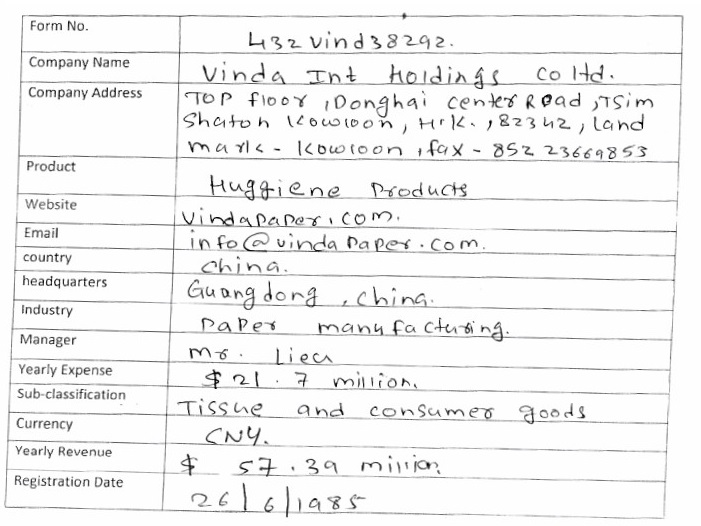 Form No. 432vind38292.
Company Name Vinda Int Holdings co ltd.
Company Address TOP floor, Donghai center Road, Tsim
Shaton Kowloon, H.K., 82342, land
mark - Kowloon, fax - 852 23669853
Product Huggiene Products
Website vindapaper.com.
Email info@vindapaper.com.
country china.
headquarters Guangdong, china.
Industry paper manufacturing.
Manager mr. Liea
Yearly Expense $ 21.7 million.
Sub-classification Tissue and consumer goods
Currency CNY.
Yearly Revenue $ 57.39 million.
Registration Date 26/6/1985